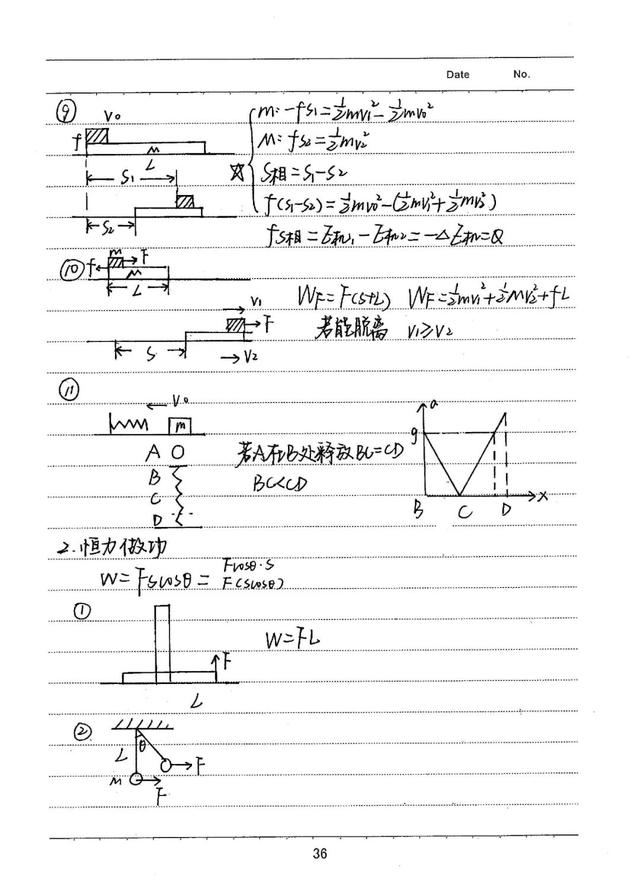 Date No.
⑨
v₀
f
M
L
S₁
S₂
m: -fs₁=½mv₁²-½mv₀²
M: fs₂=½mv₂²
☆
S相=S₁-S₂
f(s₁-s₂)=½mv₀²-(½mv₁²+½mv₂²)
fS相=E机₁-E机₂=-△E机=Q
⑩
m F
f
M
L
v₁
F
S
v₂
WF=F(S+L) WF=½mv₁²+½Mv₂²+fL
若能脱离 v₁≥v₂
⑪
v₀
m
A O
B
C
D
若A在B处释放BC=CD
BC<CD
a
g
B C D x
2.恒力做功
W=Fscosθ= Fcosθ·s
F(scosθ)
①
F
L
W=FL
②
θ
L
F
M
F
36